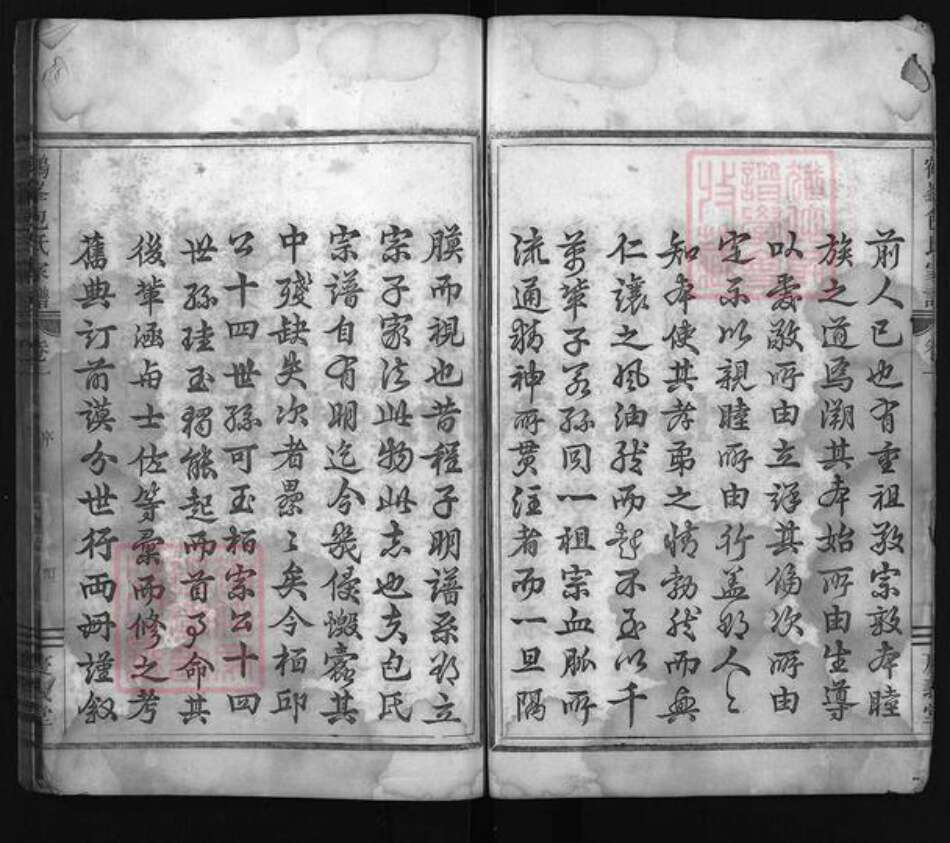 前人已也有重祖敬宗敦本睦
族之道焉溯其本始所由生導
以愛敬所由立詳其倫次所由
定示以親睦所由行蓋郡人〻
知本使其孝弟之情勃然而興
仁讓之風油然而起不至以千
萬輩子若孫同一祖宗血脈所
流通精神所贯注者而一旦隔
膜而視也昔程子明譜系郡立
宗子家法此物此志也夫包氏
宗譜自有明迄今幾侵燬蠹其
中殘缺失次者纍〻矣今栢邱
公十四世孫可玉栢宗公十四
世孫珪玉獨能起而首事命其
後輩涵與士佐等彙而修之考
舊典訂前謨分世行兩冊謹叙
鶴峯包氏家譜 卷一 序